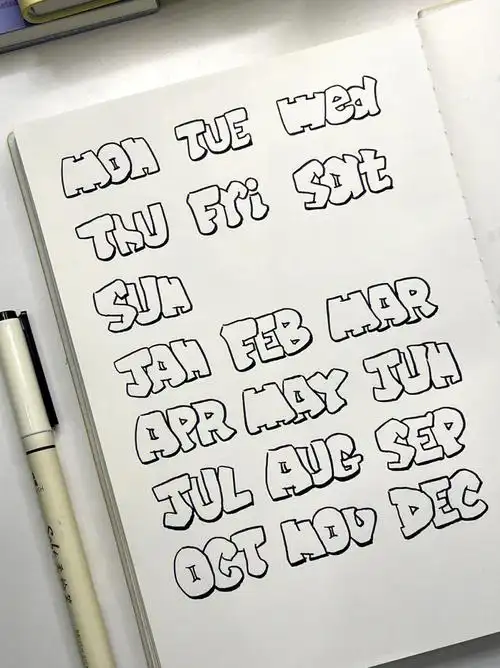 MON TUE Wed
THU Fri Sat
SUN
JAN FEB MAR
APR MAY JUN
JUL AUG SEP
OCT NOV DEC